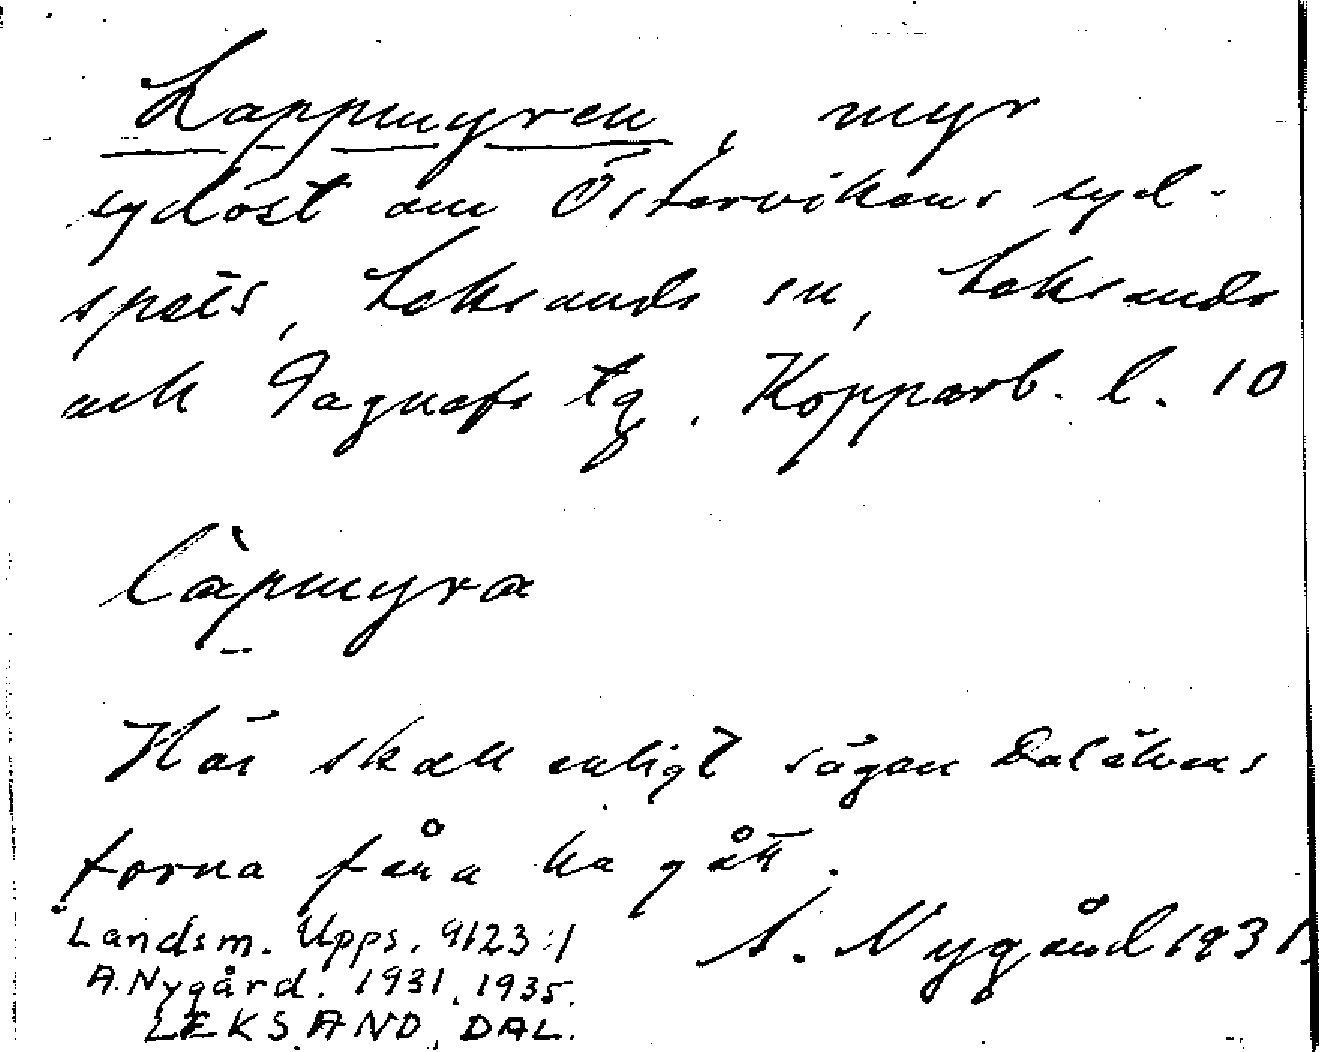 Lappmyren, myr
sydöst om Östervikens syd-
spets, Leksands sn, Leksands
och Gagnefs tg. Kopparb. l. 10
làpmyra
Här skall enligt sägen Dalälvens
forna fåra ha gått.
A. Nygård 1931.
Landsm. Upps. 9123:1
A. Nygård. 1931, 1935.
LEKSAND, DAL.